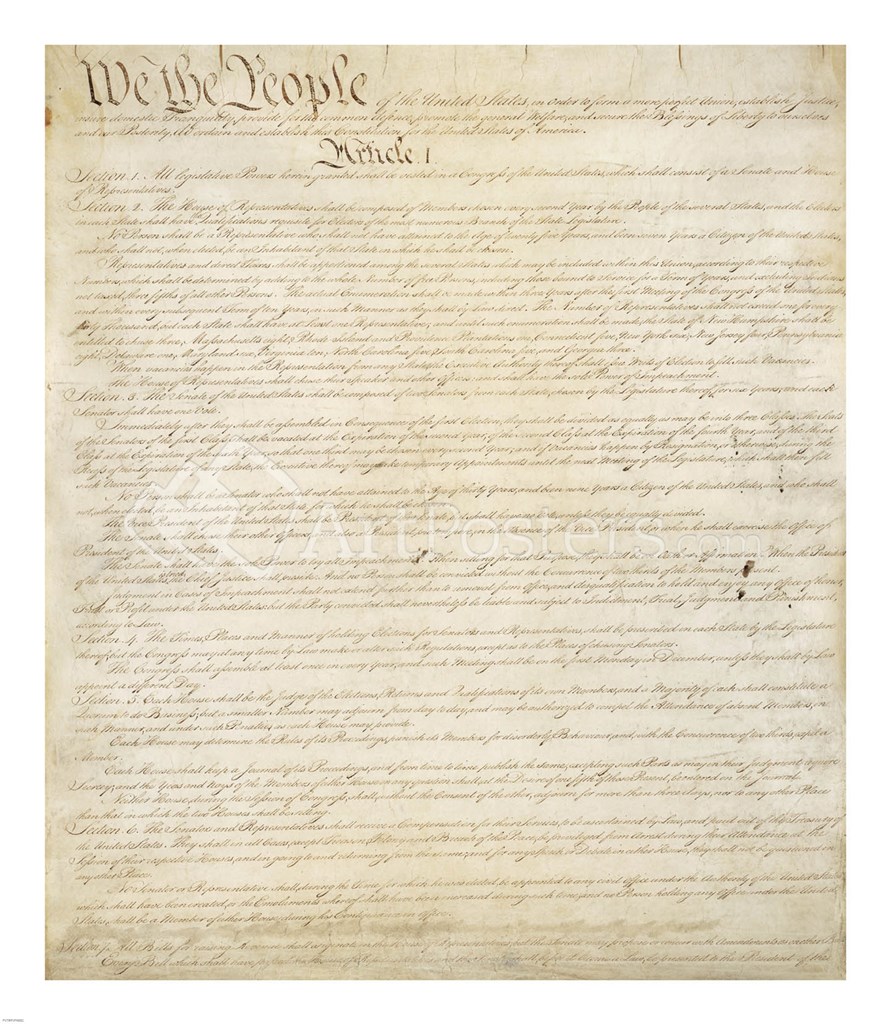 We the People of the United States, in Order to form a more perfect Union, establish Justice,
insure domestic Tranquility, provide for the common defence, promote the general Welfare, and secure the Blessings of Liberty to ourselves
and our Posterity, do ordain and establish this Constitution for the United States of America.
Article. I.
Section. 1. All legislative Powers herein granted shall be vested in a Congress of the United States, which shall consist of a Senate and House
of Representatives.
Section. 2. The House of Representatives shall be composed of Members chosen every second Year by the People of the several States, and the Electors
in each State shall have Qualifications requisite for Electors of the most numerous Branch of the State Legislature.
No Person shall be a Representative who shall not have attained to the Age of twenty five Years, and been seven Years a Citizen of the United States,
and who shall not, when elected, be an Inhabitant of that State in which he shall be chosen.
Representatives and direct Taxes shall be apportioned among the several States which may be included within this Union, according to their respective
Numbers, which shall be determined by adding to the whole Number of free Persons, including those bound to Service for a Term of Years, and excluding Indians
not taxed, three fifths of all other Persons. The actual Enumeration shall be made within three Years after the first Meeting of the Congress of the United States,
and within every subsequent Term of ten Years, in such Manner as they shall by Law direct. The Number of Representatives shall not exceed one for every
thirty Thousand, but each State shall have at Least one Representative; and until such enumeration shall be made, the State of New Hampshire shall be
entitled to chuse three, Massachusetts eight, Rhode Island and Providence Plantations one, Connecticut five, New York six, New Jersey four, Pennsylvania
eight, Delaware one, Maryland six, Virginia ten, North Carolina five, South Carolina five, and Georgia three.
When vacancies happen in the Representation from any State, the Executive Authority thereof shall issue Writs of Election to fill such Vacancies.
The House of Representatives shall chuse their Speaker and other Officers; and shall have the sole Power of Impeachment.
Section. 3. The Senate of the United States shall be composed of two Senators from each State, chosen by the Legislature thereof, for six Years; and each
Senator shall have one Vote.
Immediately after they shall be assembled in Consequence of the first Election, they shall be divided as equally as may be into three Classes. The Seats
of the Senators of the first Class shall be vacated at the Expiration of the second Year, of the second Class at the Expiration of the fourth Year, and of the third
Class at the Expiration of the sixth Year, so that one third may be chosen every second Year; and if Vacancies happen by Resignation, or otherwise, during the
Recess of the Legislature of any State, the Executive thereof may make temporary Appointments until the next Meeting of the Legislature, which shall then fill
such Vacancies.
No Person shall be a Senator who shall not have attained to the Age of thirty Years, and been nine Years a Citizen of the United States, and who shall
not, when elected, be an Inhabitant of that State for which he shall be chosen.
The Vice President of the United States shall be President of the Senate, but shall have no Vote, unless they be equally divided.
The Senate shall chuse their other Officers, and also a President pro tempore, in the Absence of the Vice President, or when he shall exercise the Office of
President of the United States.
The Senate shall have the sole Power to try all Impeachments. When sitting for that Purpose, they shall be on Oath or Affirmation. When the President
of the United States is tried, the Chief Justice shall preside: And no Person shall be convicted without the Concurrence of two thirds of the Members present.
Judgment in Cases of Impeachment shall not extend further than to removal from Office, and disqualification to hold and enjoy any Office of honor,
Trust or Profit under the United States: but the Party convicted shall nevertheless be liable and subject to Indictment, Trial, Judgment and Punishment,
according to Law.
Section. 4. The Times, Places and Manner of holding Elections for Senators and Representatives, shall be prescribed in each State by the Legislature
thereof; but the Congress may at any time by Law make or alter such Regulations, except as to the Places of chusing Senators.
The Congress shall assemble at least once in every Year, and such Meeting shall be on the first Monday in December, unless they shall by Law
appoint a different Day.
Section. 5. Each House shall be the Judge of the Elections, Returns and Qualifications of its own Members, and a Majority of each shall constitute a
Quorum to do Business; but a smaller Number may adjourn from day to day, and may be authorized to compel the Attendance of absent Members, in
such Manner, and under such Penalties as each House may provide.
Each House may determine the Rules of its Proceedings, punish its Members for disorderly Behaviour, and, with the Concurrence of two thirds, expel a
Member.
Each House shall keep a Journal of its Proceedings, and from time to time publish the same, excepting such Parts as may in their Judgment require
Secrecy; and the Yeas and Nays of the Members of either House on any question shall, at the Desire of one fifth of those Present, be entered on the Journal.
Neither House, during the Session of Congress, shall, without the Consent of the other, adjourn for more than three days, nor to any other Place
than that in which the two Houses shall be sitting.
Section. 6. The Senators and Representatives shall receive a Compensation for their Services, to be ascertained by Law, and paid out of the Treasury of
the United States. They shall in all Cases, except Treason, Felony and Breach of the Peace, be privileged from Arrest during their Attendance at the
Session of their respective Houses, and in going to and returning from the same; and for any Speech or Debate in either House, they shall not be questioned in
any other Place.
No Senator or Representative shall, during the Time for which he was elected, be appointed to any civil Office under the Authority of the United States,
which shall have been created, or the Emoluments whereof shall have been encreased during such time; and no Person holding any Office under the United
States, shall be a Member of either House during his Continuance in Office.
Section. 7. All Bills for raising Revenue shall originate in the House of Representatives; but the Senate may propose or concur with Amendments as on other Bills.
Every Bill which shall have passed the House of Representatives and the Senate, shall, before it become a Law, be presented to the President of the
ArtPosters.com